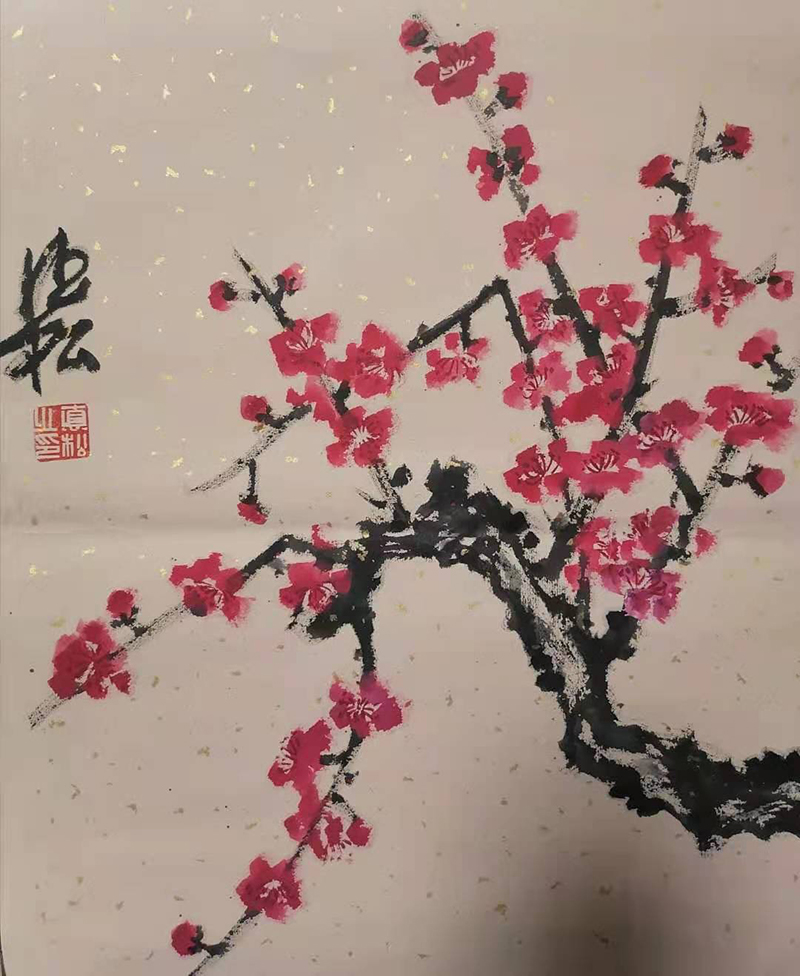 松
真松
之印